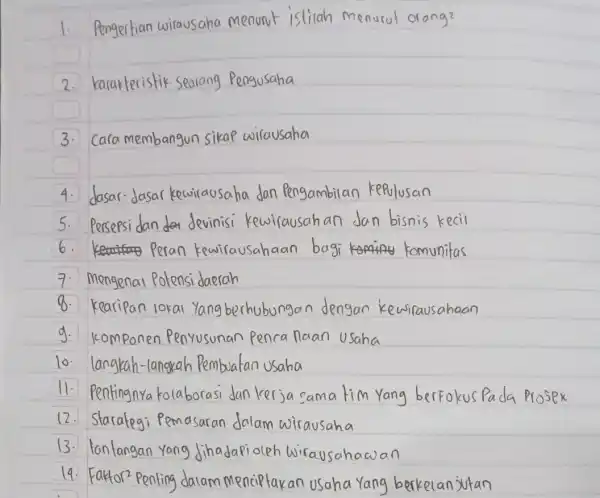 1. Pengertian wirausaha menurut istilah menurut orang²
2. karakteristik seorang Pengusaha
3. Cara membangun sikap wirausaha
4. dasar-dasar kewirausaha dan Pengambilan kePutusan
5. Persepsi dan devinisi kewirausahan dan bisnis kecil
6. Peran kewirausahaan bagi komunitas
7. mengenal Potensi daerah
8. kearipan lokal yang berhubungan dengan kewirausahaan
9. komponen Penyusunan Penra naan usaha
10. langkah-langkah Pembuatan usaha
11. Pentingnya kolaborasi dan kerja sama tim yang berfokus Pada Prosek
12. Starategi Pemasaran dalam wirausaha
13. tantangan yang dihadapi oleh wirausahawan
14. Faktor² Penting dalam menciptakan usaha yang berkelanjutan